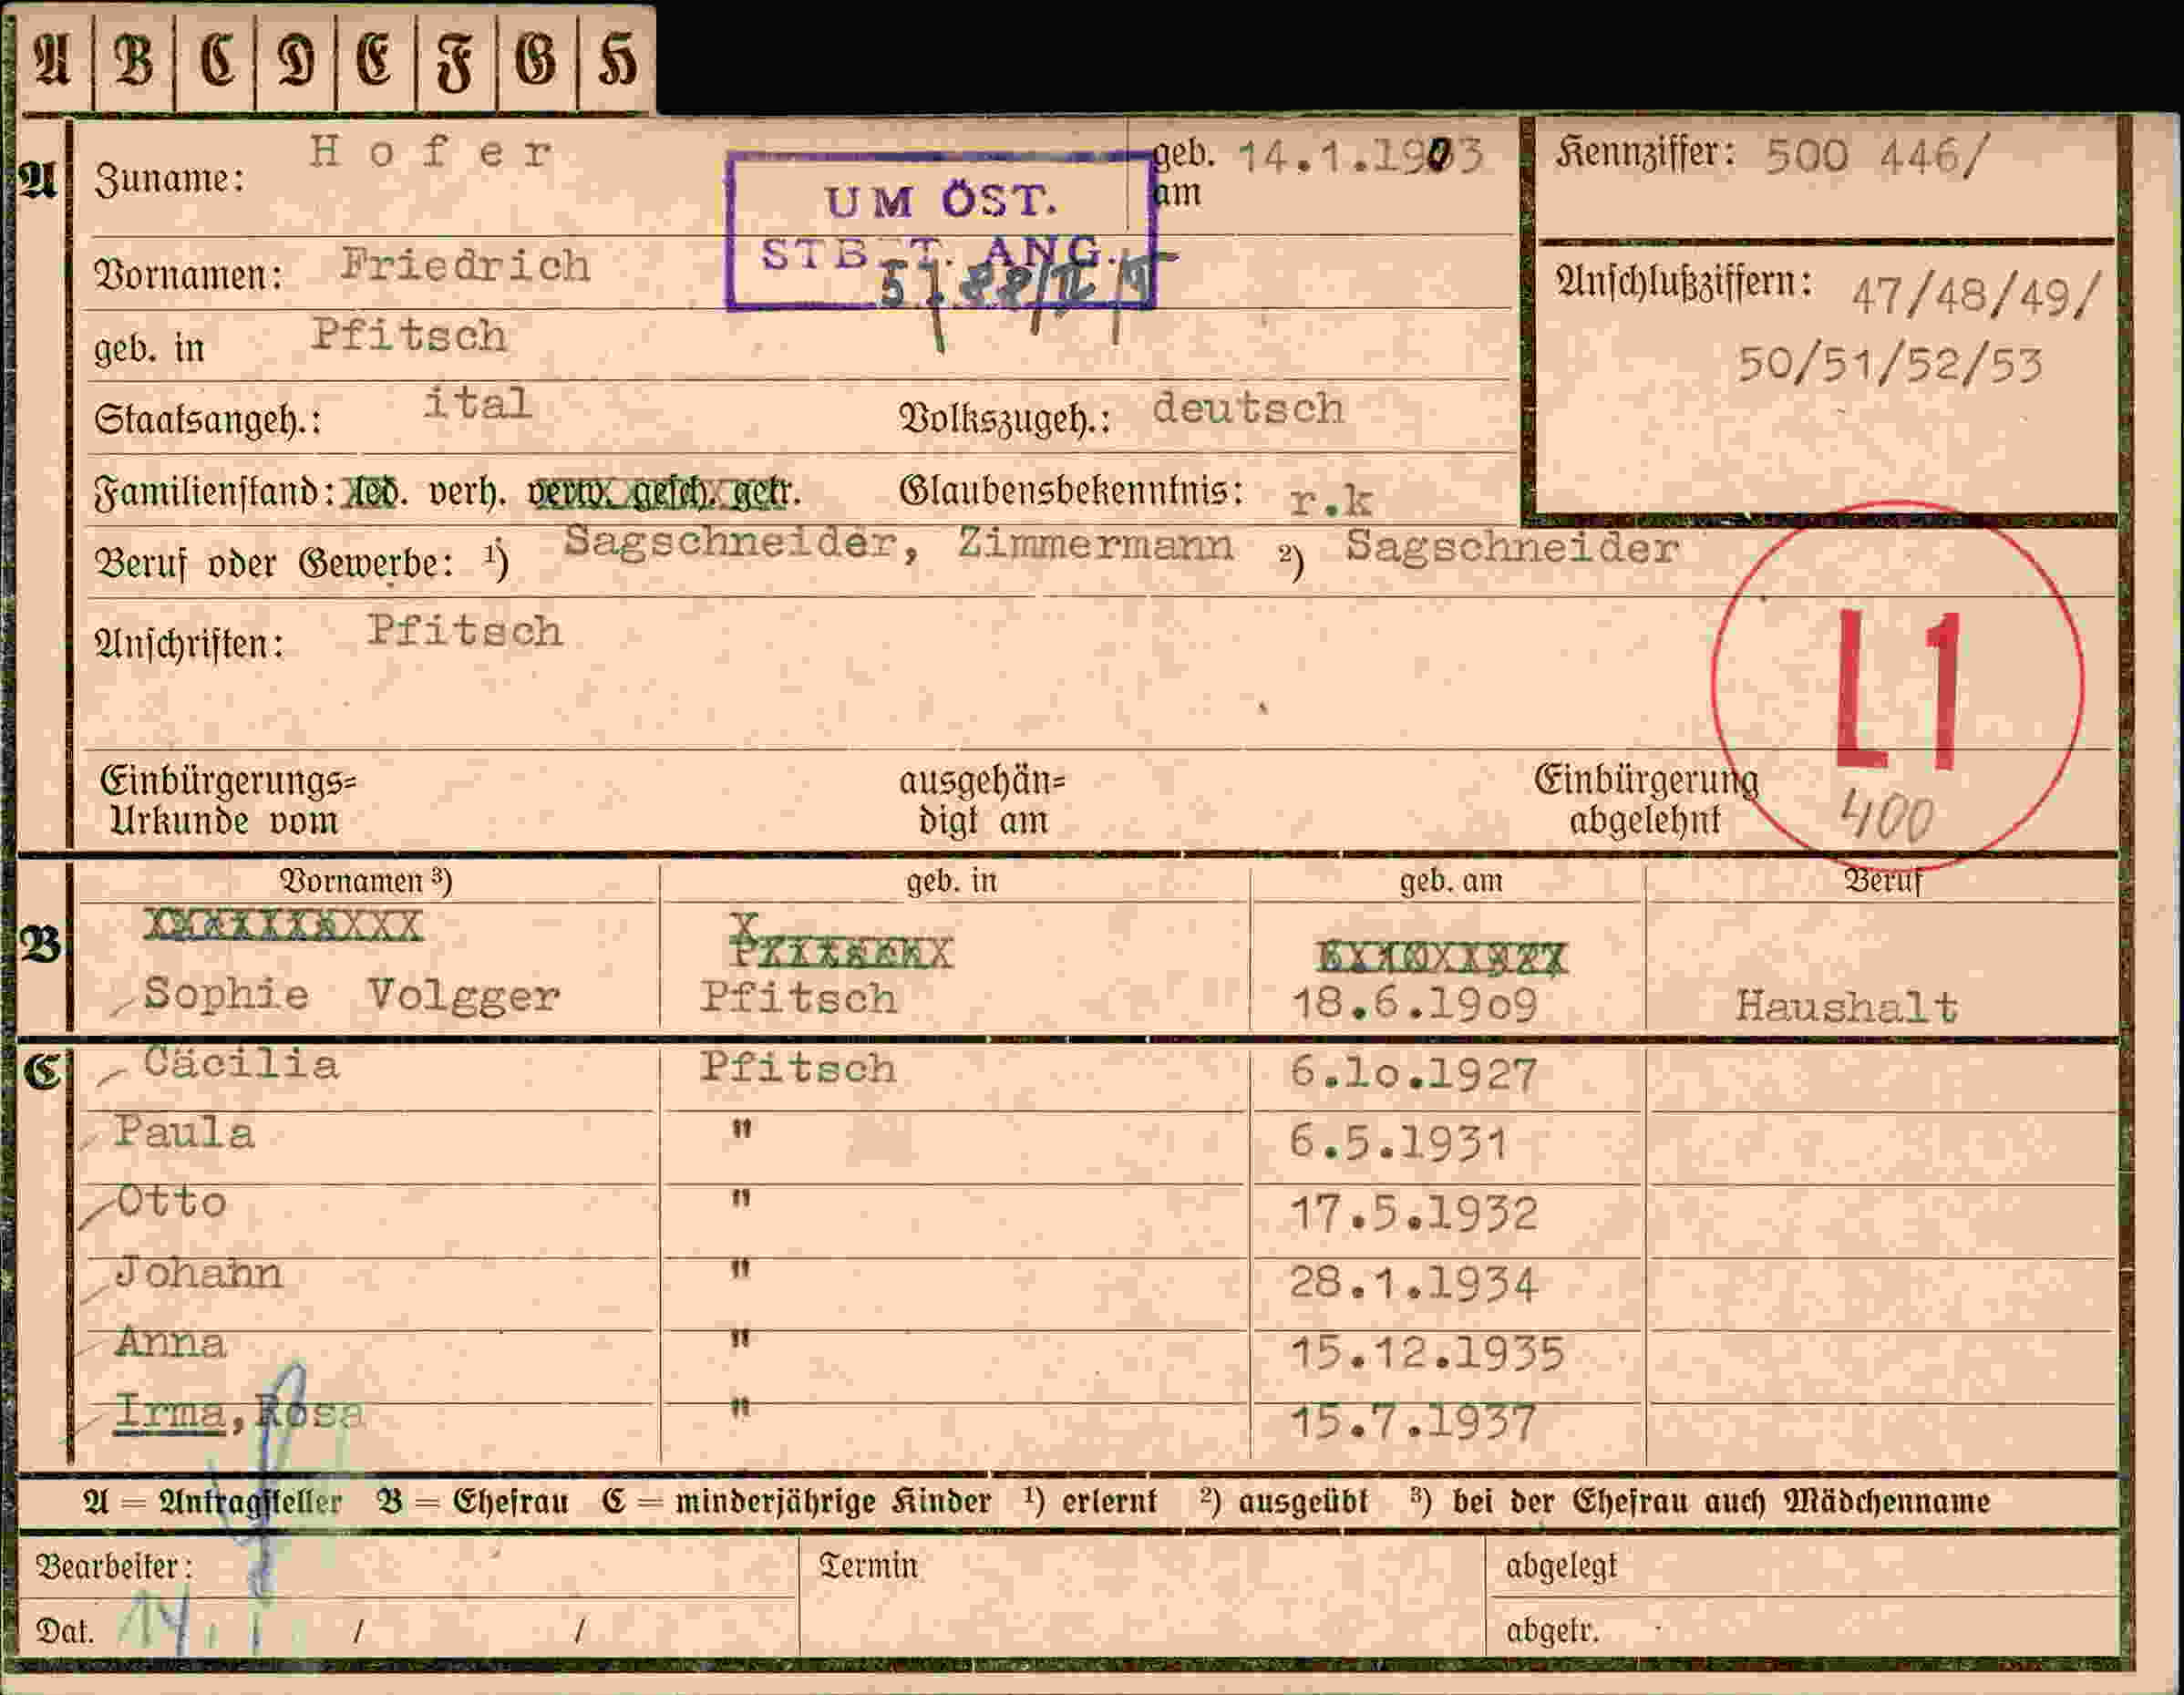 A B C D E F G H
A
Zuname: Hofer
geb. am 14.1.1903
Kennziffer: 500 446/
UM ÖST.
STB T. ANG.
Vornamen: Friedrich
Anschlußziffern: 47/48/49/
50/51/52/53
geb. in Pfitsch
Staatsangeh.: ital Volkszugeh.: deutsch
Familienstand: led. verh. verw. gesch. getr. Glaubensbekenntnis: r.k
Beruf oder Gewerbe: ¹) Sagschneider, Zimmermann ²) Sagschneider
Anschriften: Pfitsch
L1
400
Einbürgerungs=
Urkunde vom
ausgehän=
digt am
Einbürgerung
abgelehnt
Vornamen ³) geb. in geb. am Beruf
B
Sophie Volgger Pfitsch 18.6.19o9 Haushalt
C
Cäcilia Pfitsch 6.1o.1927
Paula " 6.5.1931
Otto " 17.5.1932
Johann " 28.1.1934
Anna " 15.12.1935
Irma, Rosa " 15.7.1937
A = Antragsteller B = Ehefrau C = minderjährige Kinder ¹) erlernt ²) ausgeübt ³) bei der Ehefrau auch Mädchenname
Bearbeiter: Termin abgelegt
Dat. 14 / / abgetr.